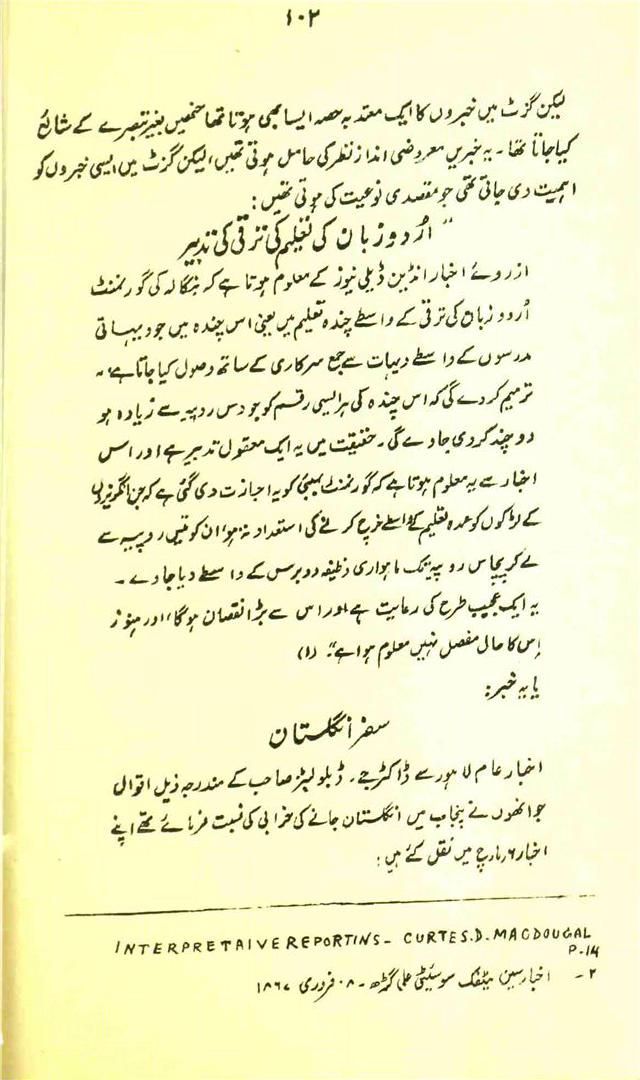 ۱۰۲
لیکن گزٹ میں خبروں کا ایک معتد بہ حصہ ایسا بھی ہوتا تھا جنھیں بغیر تبصرے کے شائع
کیا جاتا تھا۔ یہ خبریں معروضی انداز نظر کی حامل ہوتی تھیں، لیکن گزٹ میں ایسی خبروں کو
اہمیت دی جاتی تھی جو مقصدی نوعیت کی ہوتی تھیں:
"اُردو زبان کی تعلیم کی ترقی کی تدبیر
ازروئے اخبار انڈین ڈیلی نیوز کے معلوم ہوتا ہے کہ بنگالہ کی گورنمنٹ
اُردو زبان کی ترقی کے واسطے چندہ تعلیم میں یعنی اس چندہ میں جو دیہاتی
مدرسوں کے واسطے دیہات سے جمع سرکاری کے ساتھ وصول کیا جاتا ہے،
ترمیم کر دے گی کہ اس چندہ کی ہر ایسی رقم کو جو دس روپیہ سے زیادہ ہو
دو چند کر دی جاوے گی۔ حقیقت میں یہ ایک معقول تدبیر ہے اور اس
اخبار سے یہ معلوم ہوتا ہے کہ گورنمنٹ بمبئی کو یہ اجازت دی گئی ہے کہ جن انگریزوں
کے لڑکوں کو عمدہ تعلیم کے واسطے خرچ کرنے کی استعداد نہ ہو، ان کو تیس روپیہ سے
لے کر پچاس روپیہ تک ماہواری وظیفہ دو برس کے واسطے دیا جاوے۔
یہ ایک عجیب طرح کی رعایت ہے اور اس سے بڑا نقصان ہوگا" اور ہنوز
اس کا حال مفصل نہیں معلوم ہوا ہے"۔ (۱)
یا یہ خبر:
سفر انگلستان
اخبار عام لاہور سے ڈاکٹر جے۔ ڈبلو لیٹز صاحب کے مندرجہ ذیل اقوال
جو انھوں نے پنجاب میں انگلستان جانے کی خرابی کی نسبت فرمائے تھے اپنے
اخبار ۶ مارچ میں نقل کئے ہیں:
INTERPRETAIVE REPORTINS - CURTES.D. MACDOUGAL
P-14
۲- اخبار سین ٹیفک سوسیٹی علی گڑھ - ۰۸ فروری ۱۸۶۷